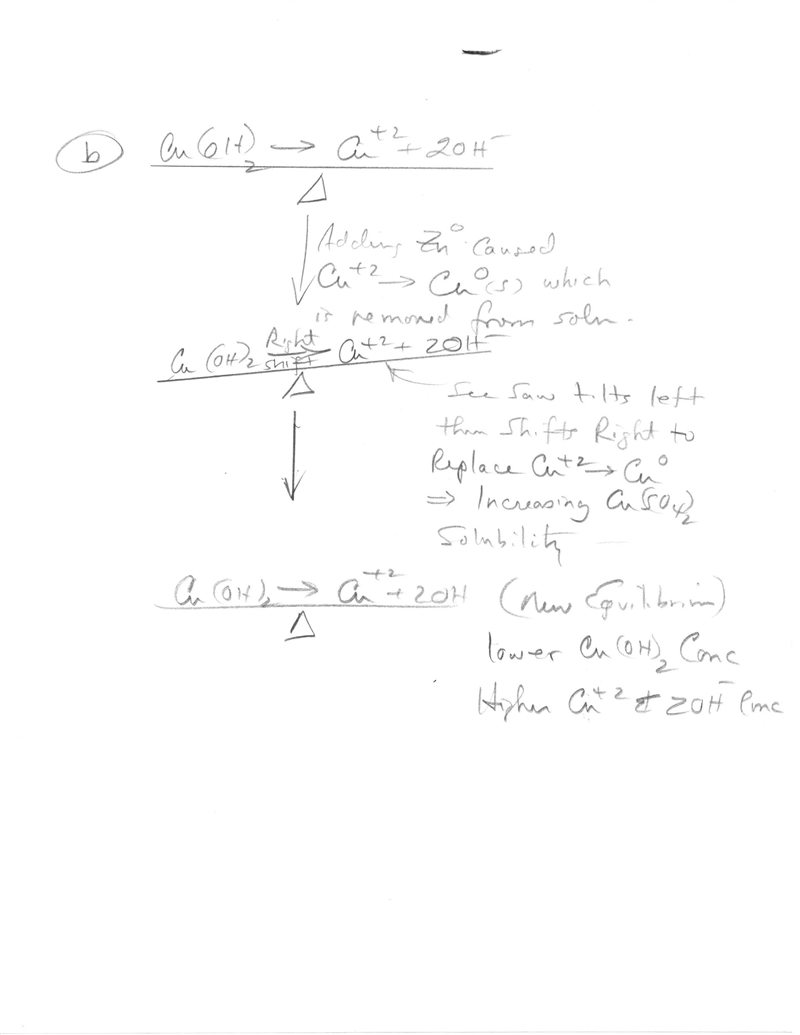 b Cu(OH)₂ → Cu⁺² + 2OH⁻
Δ
Adding Zn⁰ Caused
Cu⁺² → Cu⁰(s) which
is removed from soln.
Right
Cu(OH)₂ shift Cu⁺² + 2OH⁻
Δ
See Saw tilts left
then Shifts Right to
Replace Cu⁺² → Cu⁰
⇒ Increasing Cu(SO₄)₂
Solubility
Cu(OH)₂ → Cu⁺² + 2OH (New Equilibrim)
Δ
lower Cu(OH)₂ Conc
Higher Cu⁺² & 2OH⁻ Conc